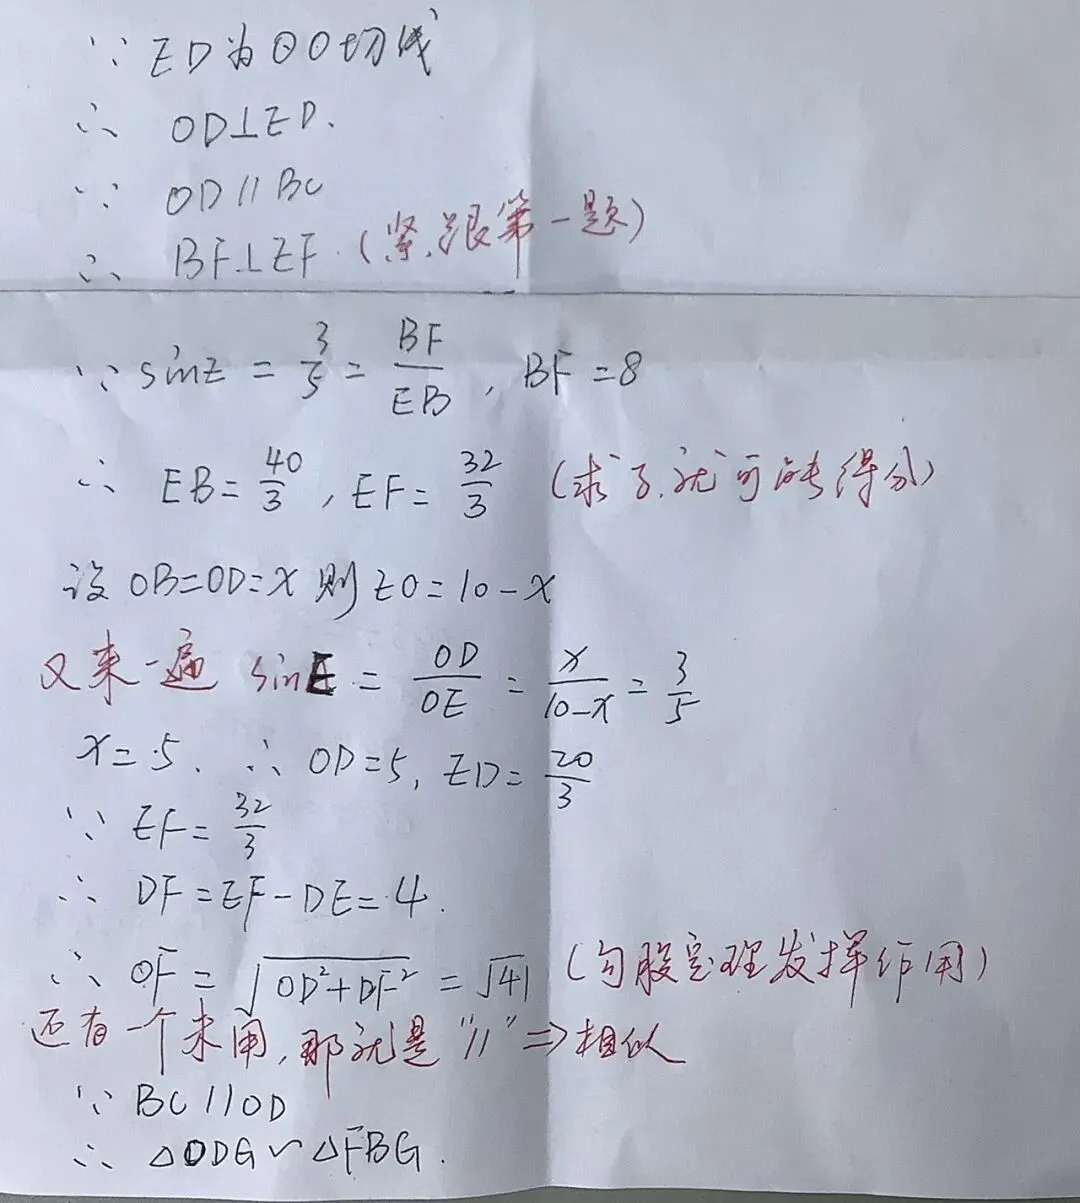 ∵ ED为⊙O切线
∴ OD⊥ED.
∵ OD//BC
∴ BF⊥EF.(紧跟第一题)
∵ sinE = 3/5 = BF/EB, BF=8
∴ EB=40/3, EF=32/3 (求了就可能得分)
设OB=OD=x则EO=10-x
又来一遍 sinE = OD/OE = x/10-x = 3/5
x=5. ∴ OD=5, ED=20/3
∵ EF=32/3
∴ DF=EF-DE=4.
∴ OF=√OD²+DF² =√41 (勾股定理发挥作用)
还有一个未用,那就是"//"⇒相似
∵ BC//OD
∴ △ODG∽△FBG.